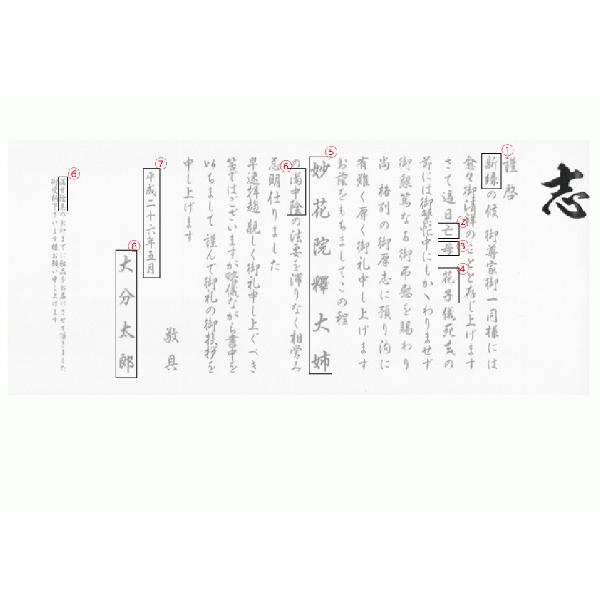 志
謹啓
①
新緑の候 御尊家御一同様には
愈々御清祥のことと存じ上げます
②
③
④
さて過日亡母 花子儀死去の
節には御繁忙中にもかゝわりませず
御懇篤なる御弔慰を賜わり
尚 格別の御厚志に預り洵に
有難く厚く御礼申し上げます
お蔭をもちましてこの程
⑤
妙花院釋大姉
⑥
の満中陰の法要を滞りなく相営み
忌明仕りました
早速拝趨 親しく御礼申し上ぐべき
筈ではございますが略儀ながら書中を
以ちまして謹んで御礼の御挨拶を
申し上げます
敬具
⑦
平成二十六年五月
⑧
大分太郎
⑥
満中陰志のお印までに粗品をお届けさせて頂きました
御受納下さいます様お願い申し上げます